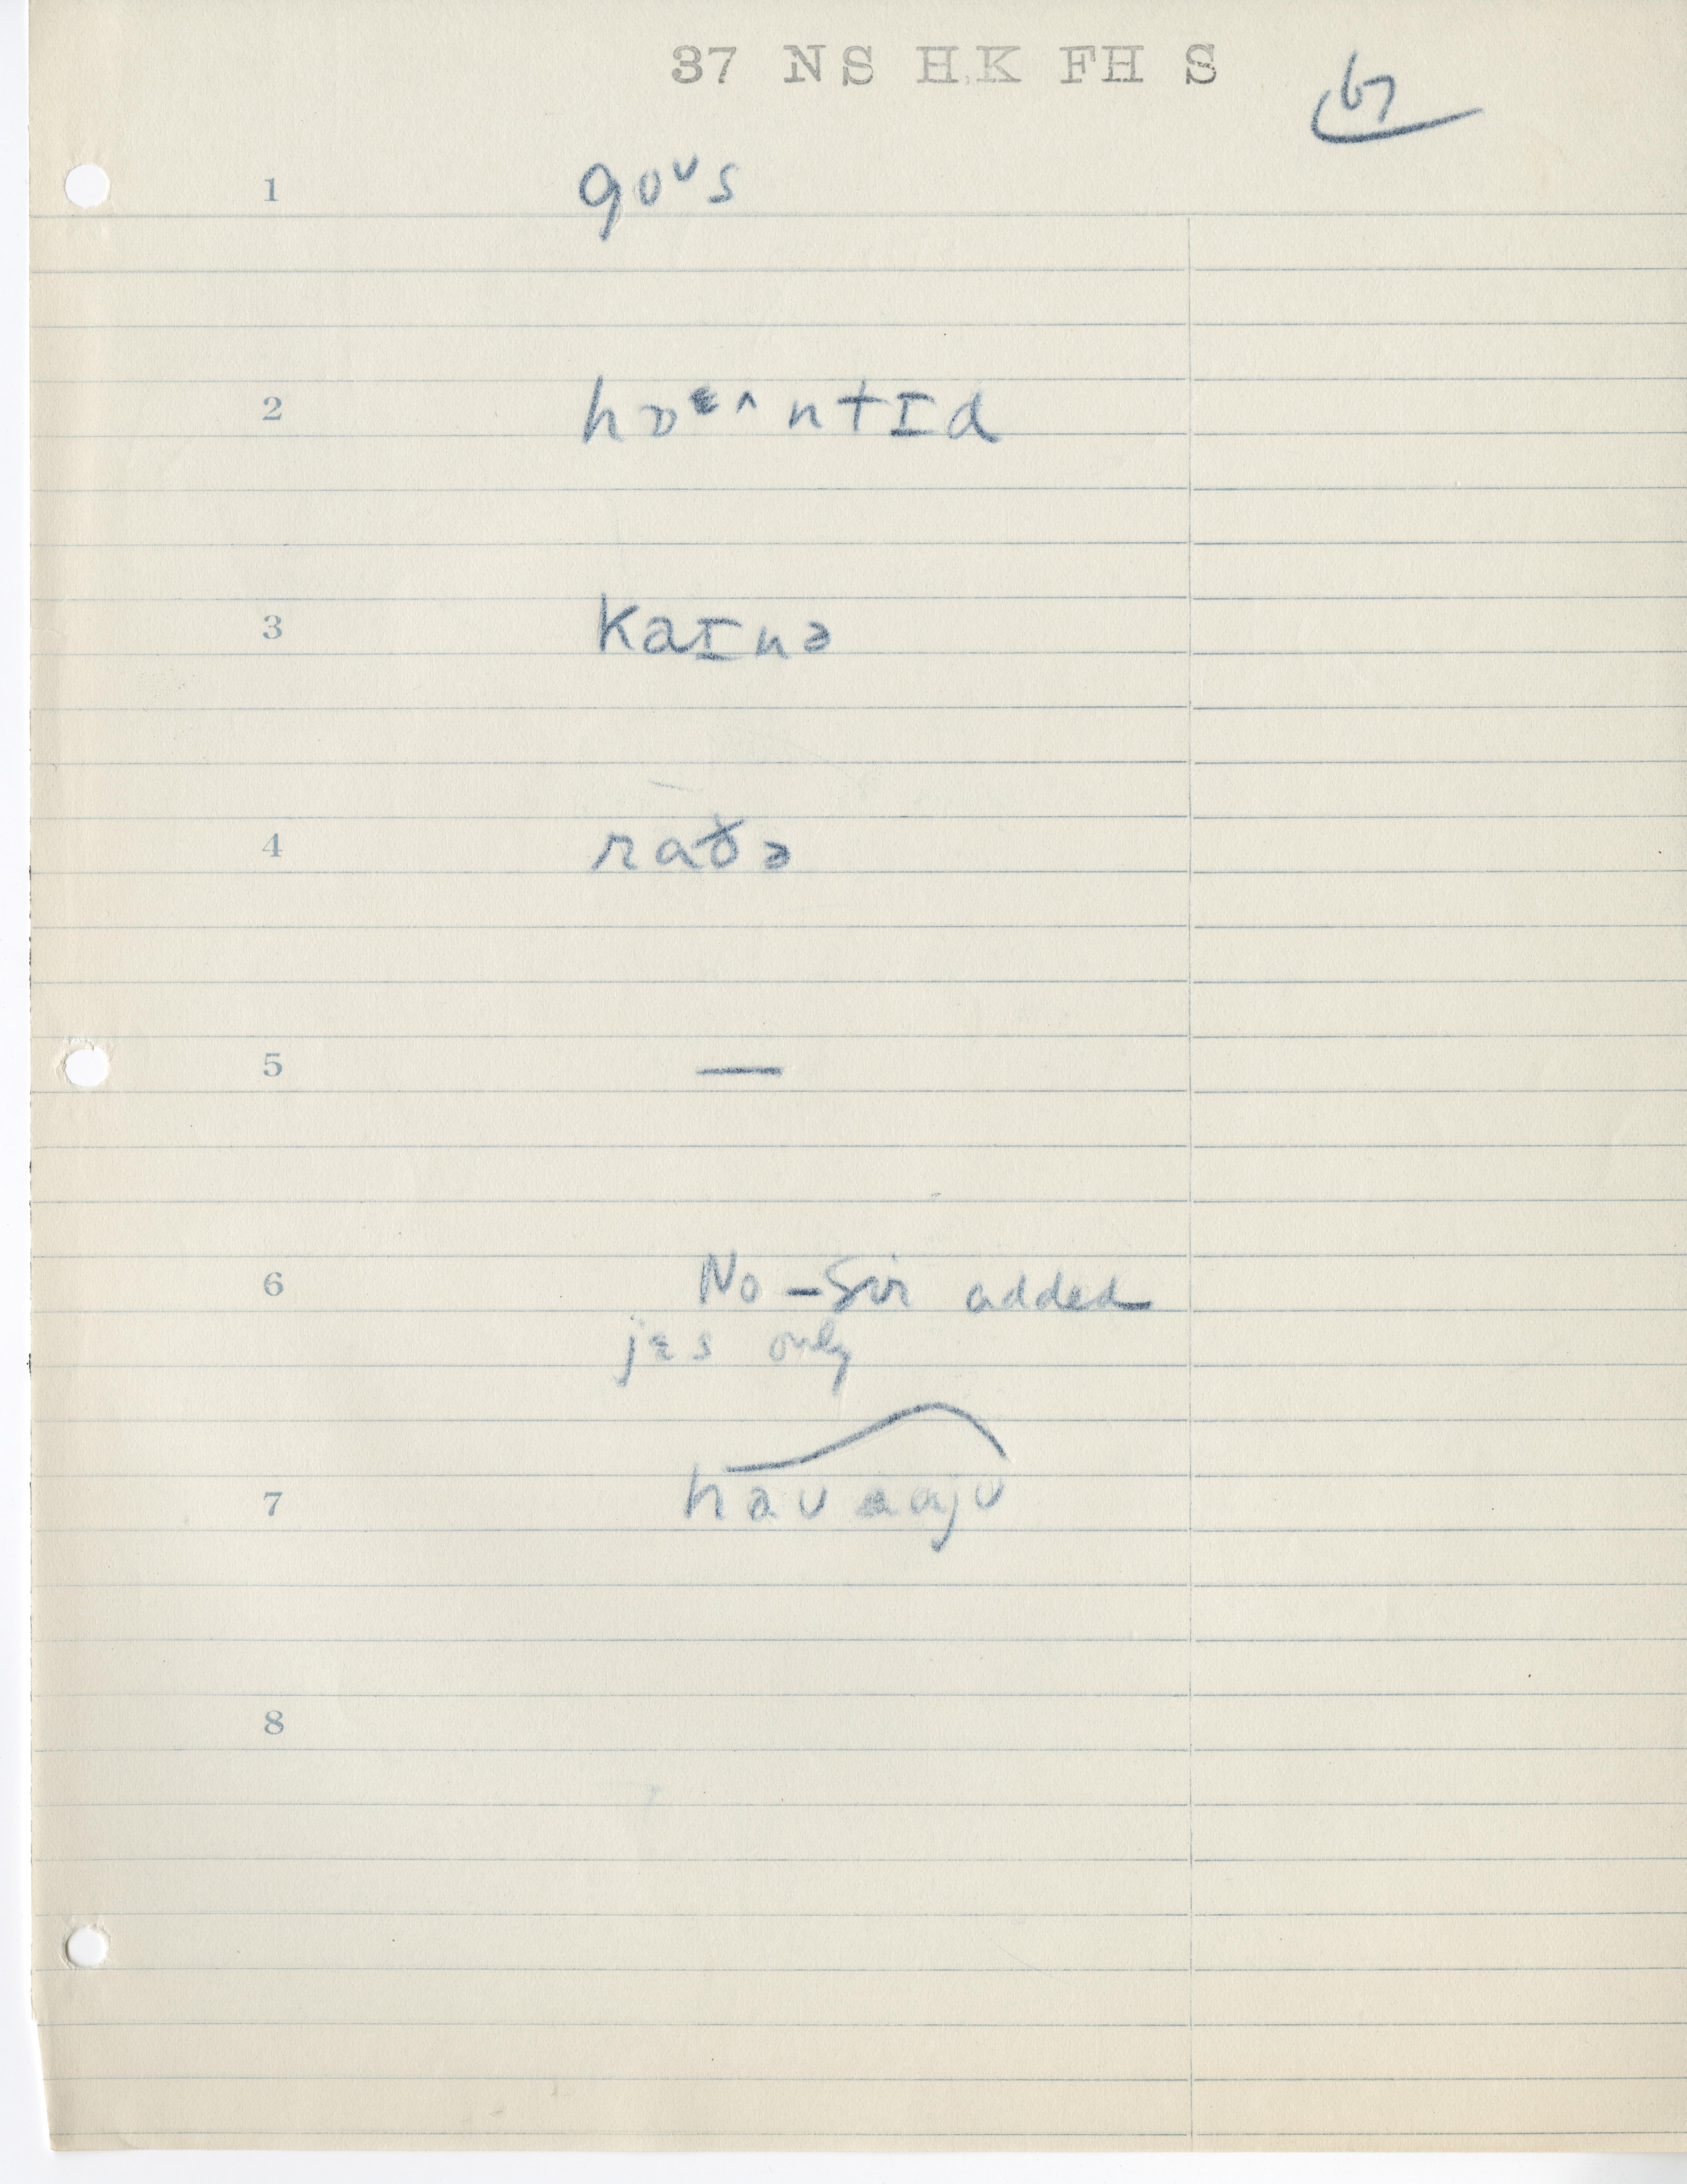 37 NS HK FH S
67
1 goᵘs
2 hɒᵋ^ntɪd
3 kaɪnə
4 raðə
5 —
6 No – Sir added
jɛs only
7 haʊ aajʊ
8